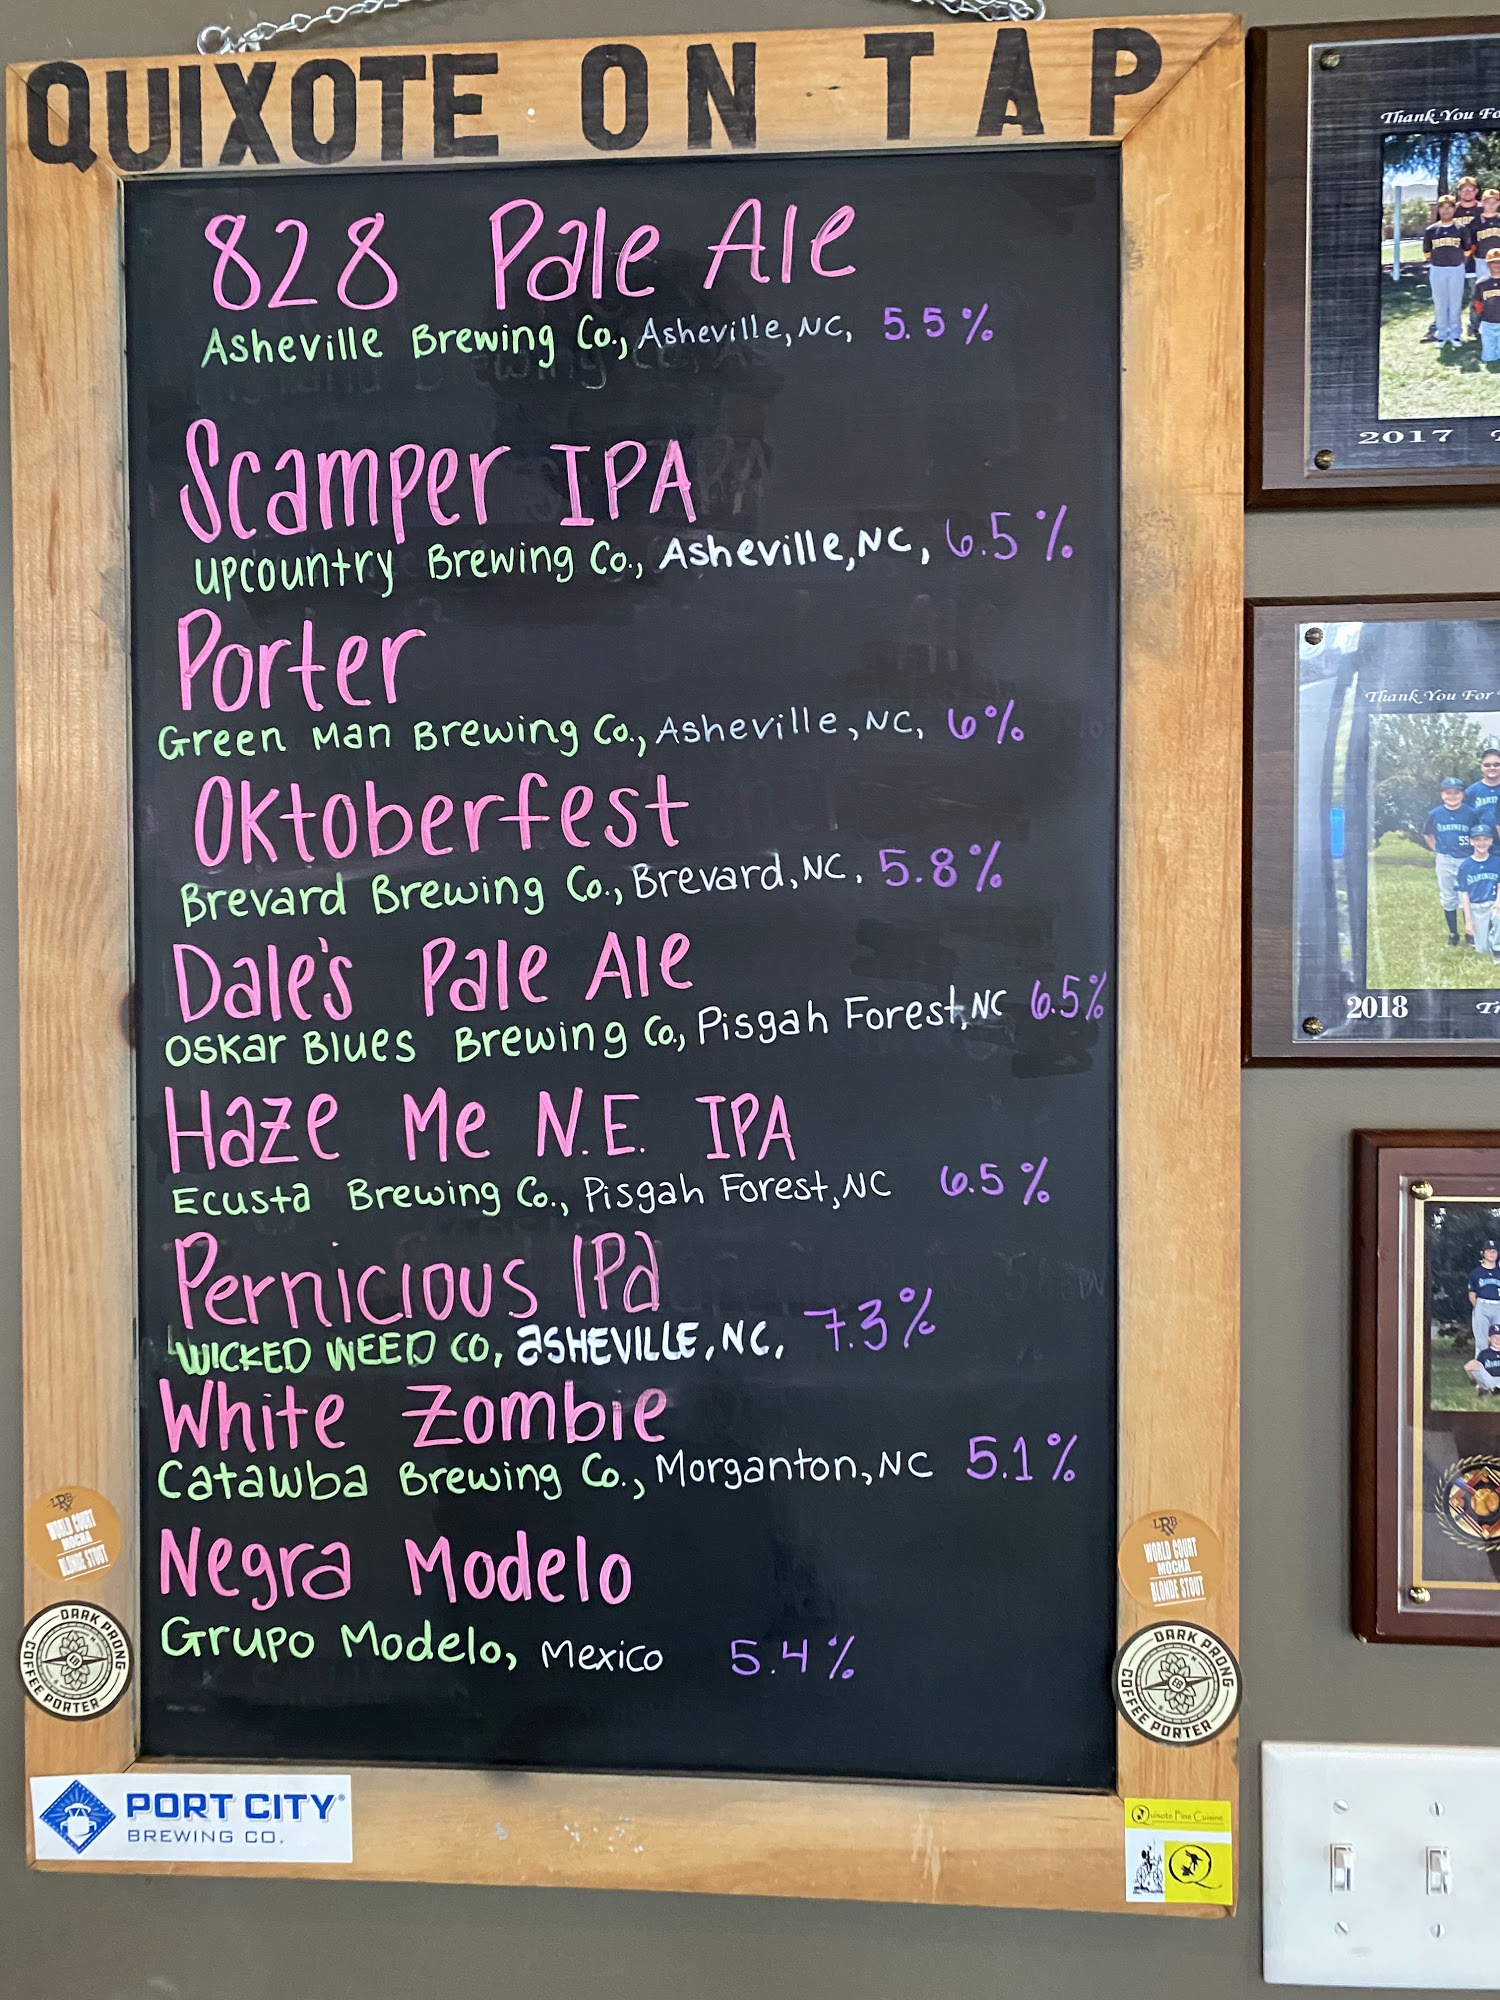 QUIXOTE ON TAP
828 Pale Ale
Asheville Brewing Co., Asheville, NC, 5.5%
Scamper IPA
Upcountry Brewing Co., Asheville, NC, 6.5%
Porter
Green Man Brewing Co., Asheville, NC, 6%
Oktoberfest
Brevard Brewing Co., Brevard, NC, 5.8%
Dale's Pale Ale
Oskar Blues Brewing Co., Pisgah Forest, NC 6.5%
Haze Me N.E. IPA
Ecusta Brewing Co., Pisgah Forest, NC 6.5%
Pernicious IPa
WICKED WEED CO, aSHEVILLE, NC, 7.3%
White Zombie
Catawba Brewing Co., Morganton, NC 5.1%
Negra Modelo
Grupo Modelo, Mexico 5.4%
LRB
WORLD COURT
MOCHA
BLONDE STOUT
DARK PRONG
COFFEE PORTER
LRB
WORLD COURT
MOCHA
BLONDE STOUT
DARK PRONG
EB
COFFEE PORTER
PORT CITY®
BREWING CO.
Quixote Fine Cuisine
Thank You
2017
Thank You For
MARINERS
55
2018